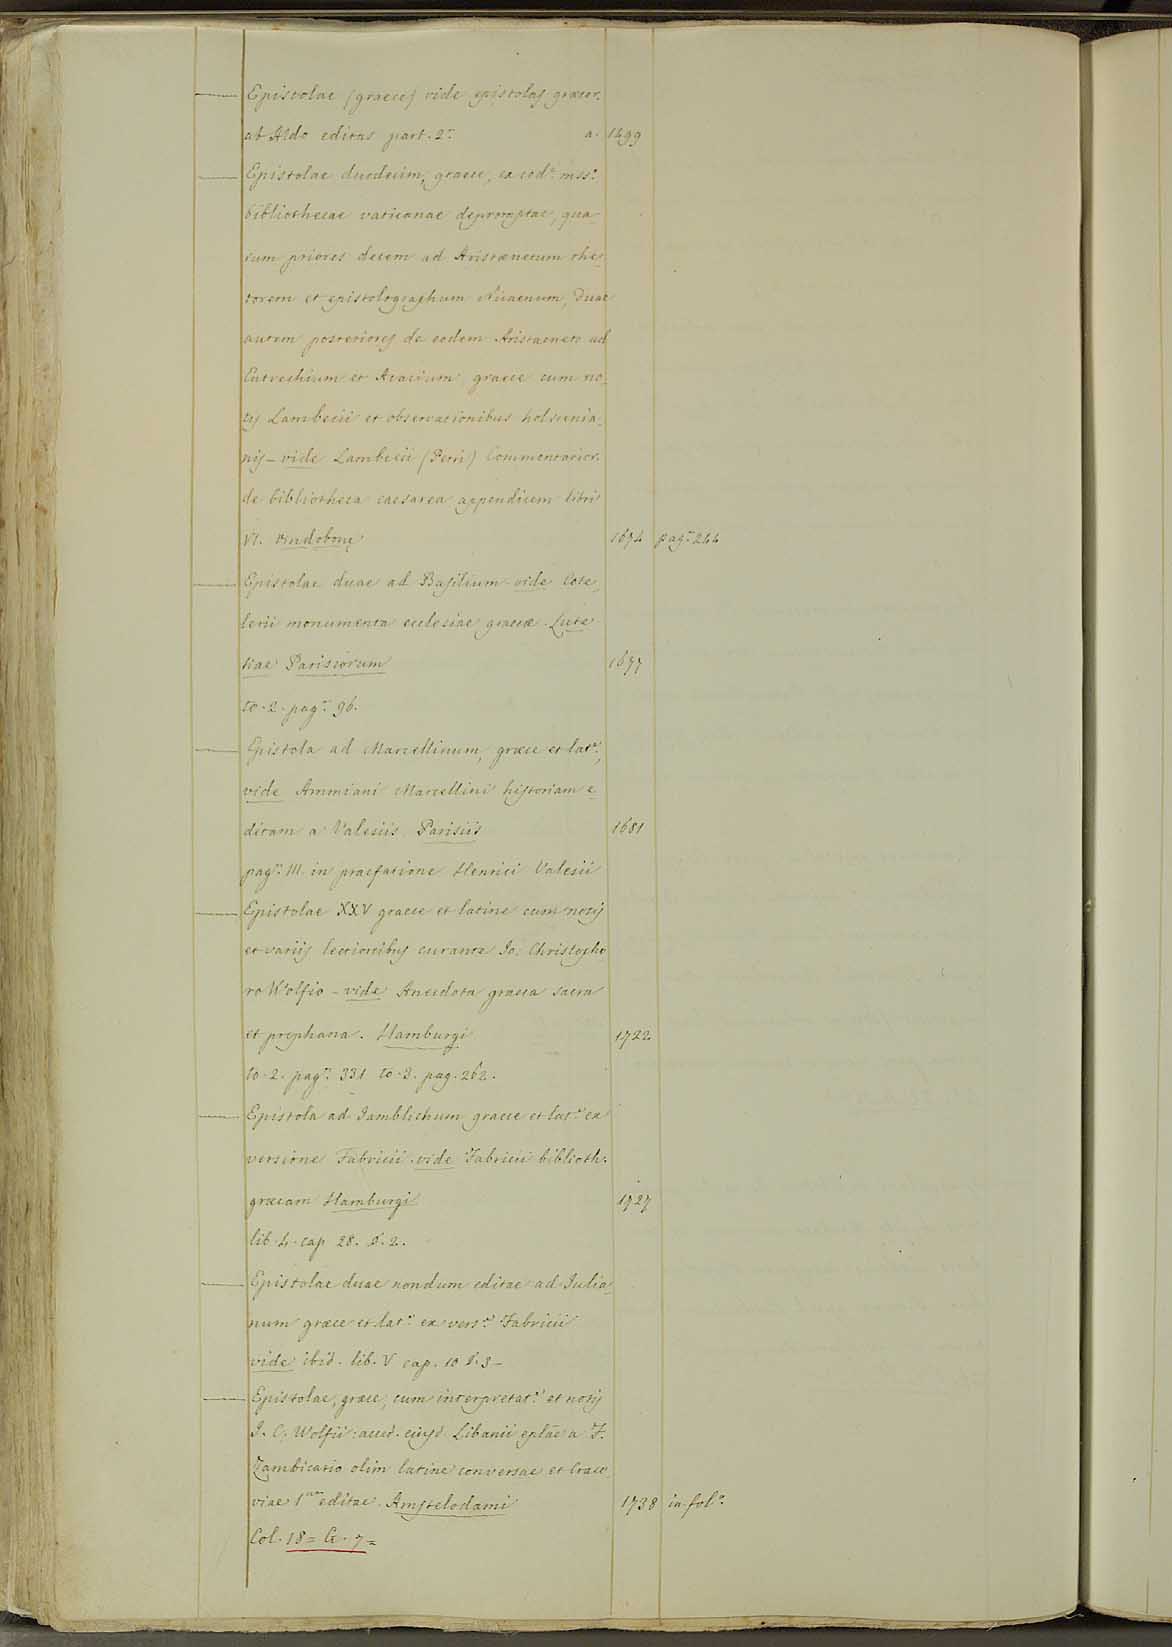 — Epistolae (graece) vide epistolas graecor.
ab Aldo editas part. 2.ª a. 1499
— Epistolae duodecim, graece, ex cod.º mss.º
bibliothecae vaticanae depromptae, qua-
rum priores decem ad Aristaenetum rhe-
torem et epistolographum Nicaenum, duae
autem posteriores de eodem Aristaeneto ad
Eutrechium et Acacium graece cum no-
tis Lambecii et observationibus holstenia-
nis – vide Lambecii (Petri) Commentarior.
de bibliotheca caesarea appendicem libri
VI. Vindobonę 1674 pag.ª 244
— Epistolae duae ad Basilium – vide Cote-
lerii monumenta ecclesiae graecae – Lute-
tiae Parisiorum 1677
to. 2. pag.ª 96.
— Epistola ad Marcellinum, graece et lat.e,
vide Ammiani Marcellini historiam e-
ditam a Valesiis Parisiis 1681
pag.ª III. in praefatione Henrici Valesii
— Epistolae XXV graece et latine cum notis
et variis lectionibus curante Jo. Christopho
ro Wolfio – vide Anecdota graeca sacra
et prophana. Hamburgi 1722
to. 2. pag.ª 331 to. 3. pag. 262.
— Epistola ad Jamblichum graece et lat.e ex
versione Fabricii. vide Fabricii biblioth.
graecam Hamburgi 1727
lib. 4. cap 28. §. 2.
— Epistolae duae nondum editae ad Julia-
num graece et lat.e ex vers.e Fabricii
vide ibid. lib. V cap. 10 §. 3 –
— Epistolae, graece, cum interpretat.e et notis
J. C. Wolfii: acced. eiusd. Libanii eplae a F.
Zambicario olim latine conversae et Craco-
viae 1um editae. Amstelodami 1738 in fol.º
Col. 18 = G. 7 =